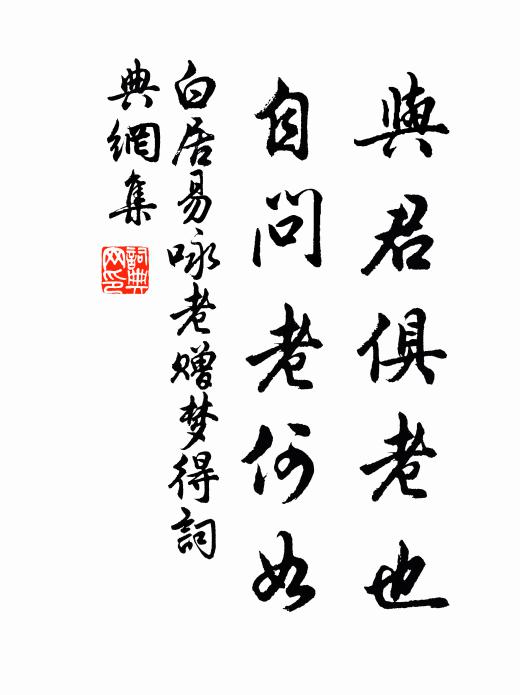 與君俱老也
自問老何如
白居易咏老赠梦得詞
典網集
詞典
网印